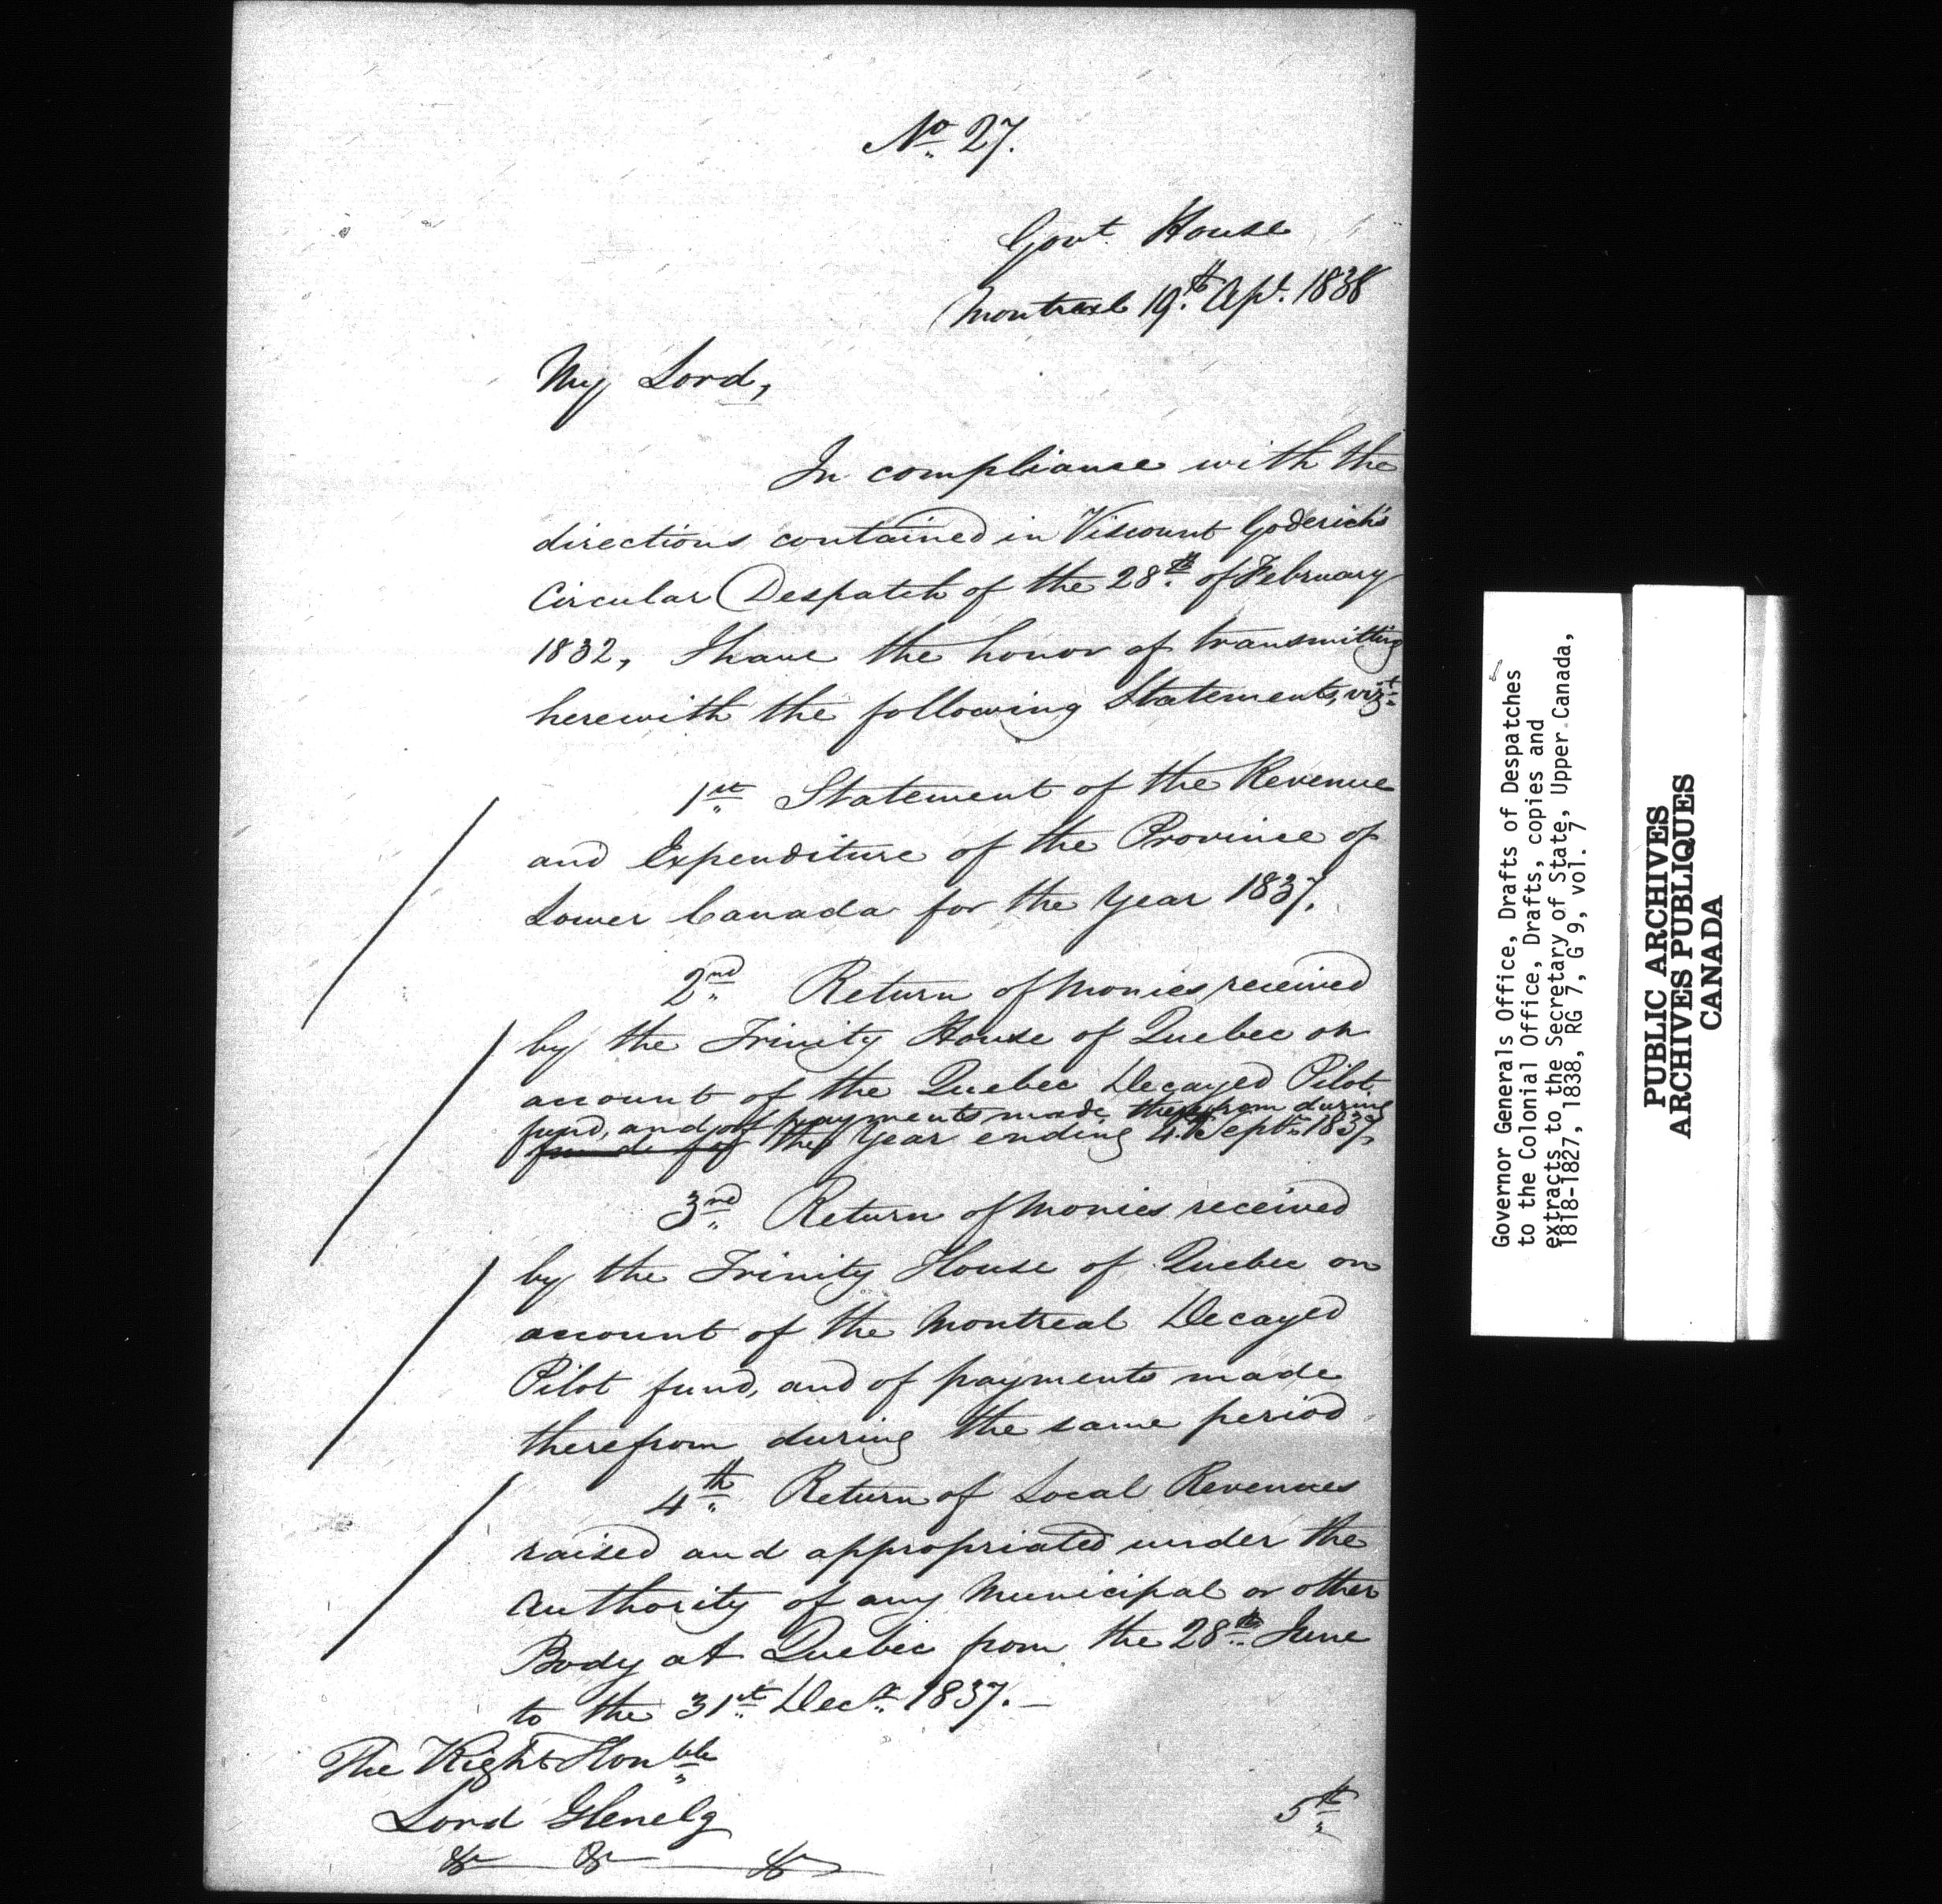 No. 27.
Govt. House
Montreal 19th. Apl. 1838
My Lord,
In compliance with the
directions contained in Viscount Goderich's
Circular Despatch of the 28th. of February
1832, I have the honor of transmitting
herewith the following Statements, vizt.
1st Statement of the Revenue
and Expenditure of the Province of
Lower Canada for the Year 1837.
2nd Return of Monies received
by the Trinity House of Quebec on
account of the Quebec Decayed Pilot
fund, and of payments made therefrom during
the Year ending 4. Septr. 1837.
3rd Return of Monies received
by the Trinity House of Quebec on
account of the Montreal Decayed
Pilot fund, and of payments made
therefrom during the same period.
4th Return of Local Revenues
raised and appropriated under the
Authority of any Municipal or other
Body at Quebec from the 28th. June
to the 31st. Decr. 1837.—
The Right Honble
Lord Glenelg
&c &c &c
5th
Governor Generals Office, Drafts of Despatches
to the Colonial Office, Drafts, copies and
extracts to the Secretary of State, Upper Canada,
1818-1827, 1838, RG 7, G 9, vol. 7
PUBLIC ARCHIVES
ARCHIVES PUBLIQUES
CANADA